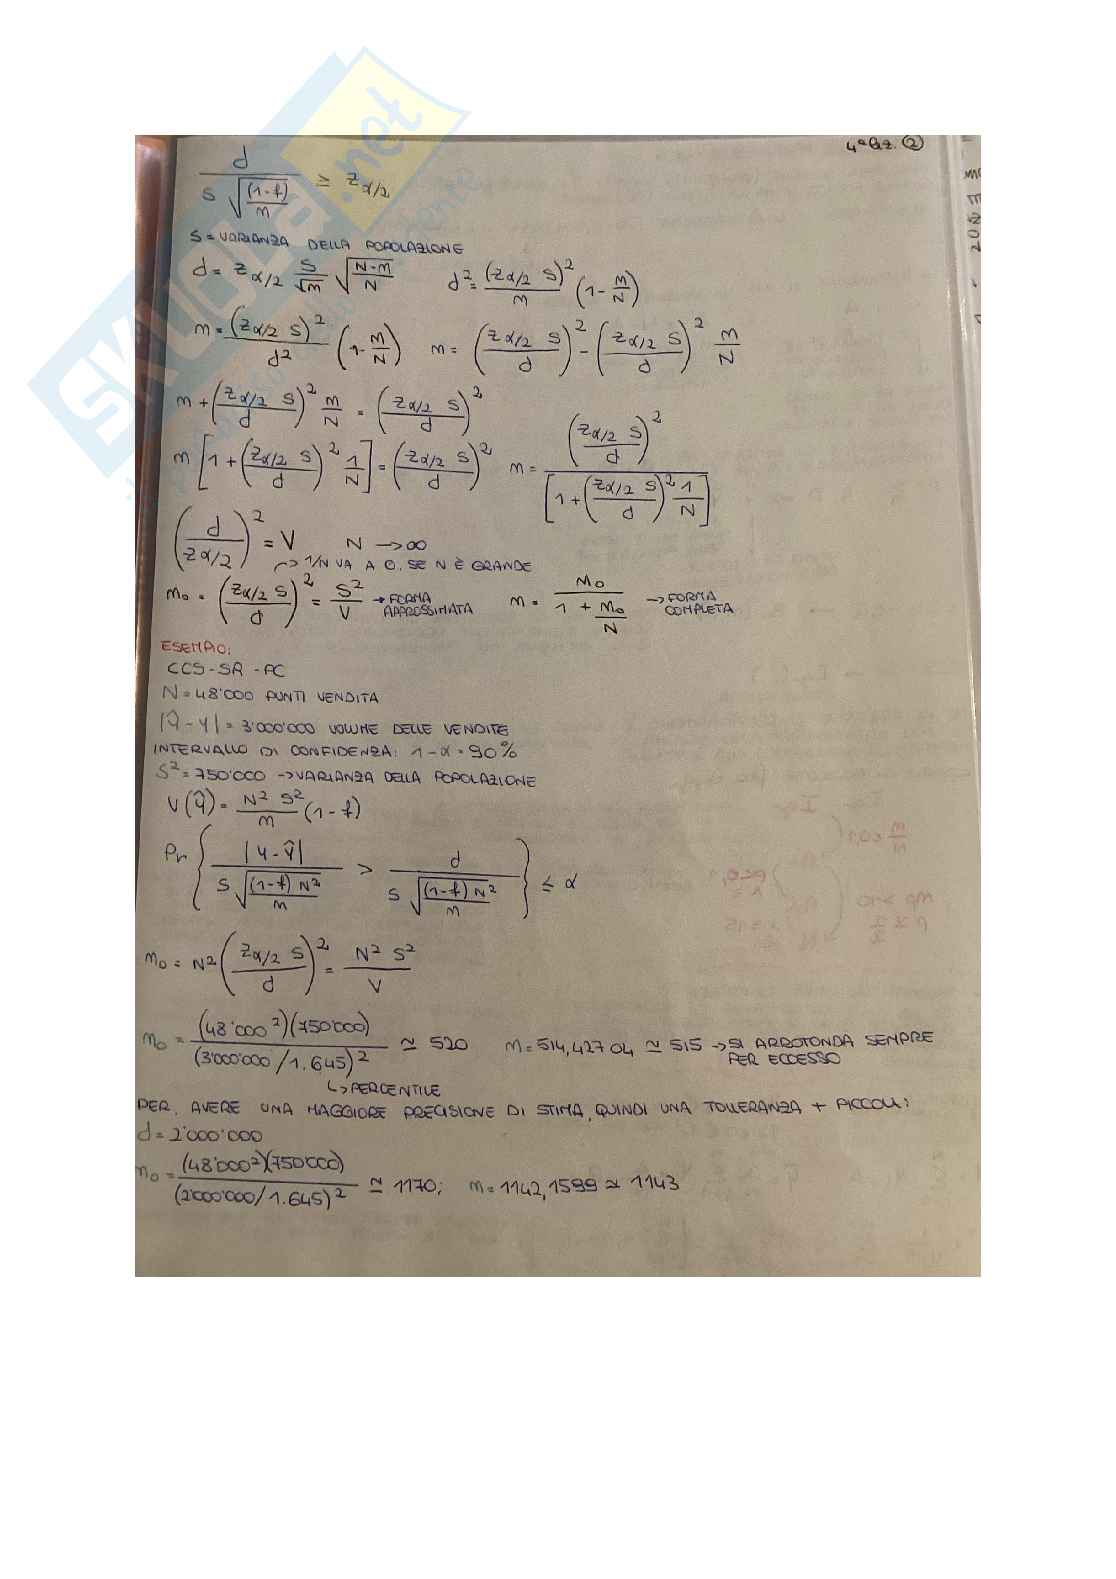 4ª lez. ②
d / (S √((1-f)/n)) ≥ z α/2
S = VARIANZA DELLA POPOLAZIONE
d = z α/2 S/√n √((N-n)/N)    d² = (z α/2 S)²/n (1 - n/N)
n = (z α/2 S)²/d² (1 - n/N)    n = (z α/2 S / d)² - (z α/2 S / d)² n/N
n + (z α/2 S / d)² n/N = (z α/2 S / d)²
n [1 + (z α/2 S / d)² 1/N] = (z α/2 S / d)²    n = (z α/2 S / d)² / [1 + (z α/2 S / d)² 1/N]
(d / z α/2)² = V    N → ∞
↪ 1/N VA A 0, SE N È GRANDE
n₀ = (z α/2 S / d)² = S²/V → FORMA APPROSSIMATA    n = n₀ / (1 + n₀/N) → FORMA COMPLETA
ESEMPIO:
CCS-SR-PC
N = 48'000 PUNTI VENDITA
|Ŷ - Y| = 3'000'000 VOLUME DELLE VENDITE
INTERVALLO DI CONFIDENZA: 1-α = 90%
S² = 750'000 → VARIANZA DELLA POPOLAZIONE
V(Ŷ) = N² S²/n (1-f)
Pr { |Y-Ŷ| / (S √((1-f) N²/n)) > d / (S √((1-f) N²/n)) } ≤ α
n₀ = N² (z α/2 S / d)² = N² S² / V
n₀ = (48'000²)(750'000) / (3'000'000/1.645)² ≃ 520    n = 514,42704 ≃ 515 → SI ARROTONDA SEMPRE PER ECCESSO
↳ PERCENTILE
PER AVERE UNA MAGGIORE PRECISIONE DI STIMA, QUINDI UNA TOLLERANZA + PICCOLA:
d = 2'000'000
n₀ = (48'000²)(750'000) / (2'000'000/1.645)² ≃ 1170;    n = 1142,1599 ≃ 1143
SKUOLA.net